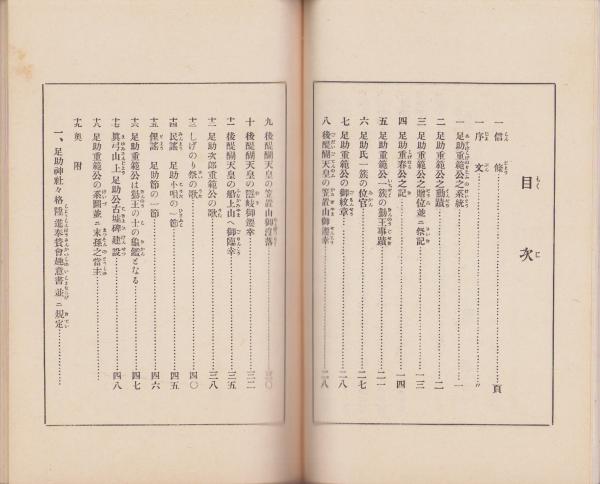 目次
一 信條…………頁
一 序文…………〃
一 足助重範公之系統…………一
二 足助重範公之勳蹟…………二
三 足助重範公之贈位並ニ祭記…………一三
四 足助重春公之記…………一四
五 足助重範公一簇の勤王事蹟…………二一
六 足助氏一簇の位官…………二七
七 足助重範公の御紋章…………二八
八 後醍醐天皇の笠置山御遷幸…………二八
九 後醍醐天皇の笠置山御沒落…………三〇
十 後醍醐天皇の隱岐御遷幸…………三二
十一 後醍醐天皇の船上山へ御臨幸…………三五
十二 足助次郎重範公の歌…………三八
十三 しげのり祭の歌…………四〇
十四 民謠 足助小唄の一節…………四五
十五 俚謠 足助節の一節…………四六
十六 足助重範公は勤王の士の龜鑑となる…………四七
十七 眞弓山上足助公古墟碑建設…………四八
十八 足助重範公の系圖並ニ末孫之當主…………
十九 奧附
一、足助神社々格陞進奉賛會趣意書並ニ規定…………